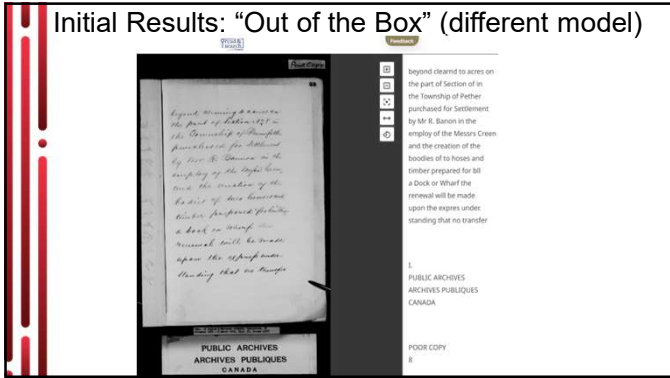 Initial Results: “Out of the Box” (different model)
Feedback
Poor Copy
the part of Section
the Township of
purchased for Settlement
by Mr R. Bannon in the
employ of the
and the creation of the
bodies of two houses and
timber prepared for
a Dock or Wharf the
renewal will be made
upon the express under
standing that no transfer
PUBLIC ARCHIVES
ARCHIVES PUBLIQUES
CANADA
beyond clearnd to acres on
the part of Section of in
the Township of Pether
purchased for Settlement
by Mr R. Banon in the
employ of the Messrs Creen
and the creation of the
boodies of to hoses and
timber prepared for bll
a Dock or Wharf the
renewal will be made
upon the expres under.
standing that no transfer
I.
PUBLIC ARCHIVES
ARCHIVES PUBLIQUES
CANADA
POOR COPY
8